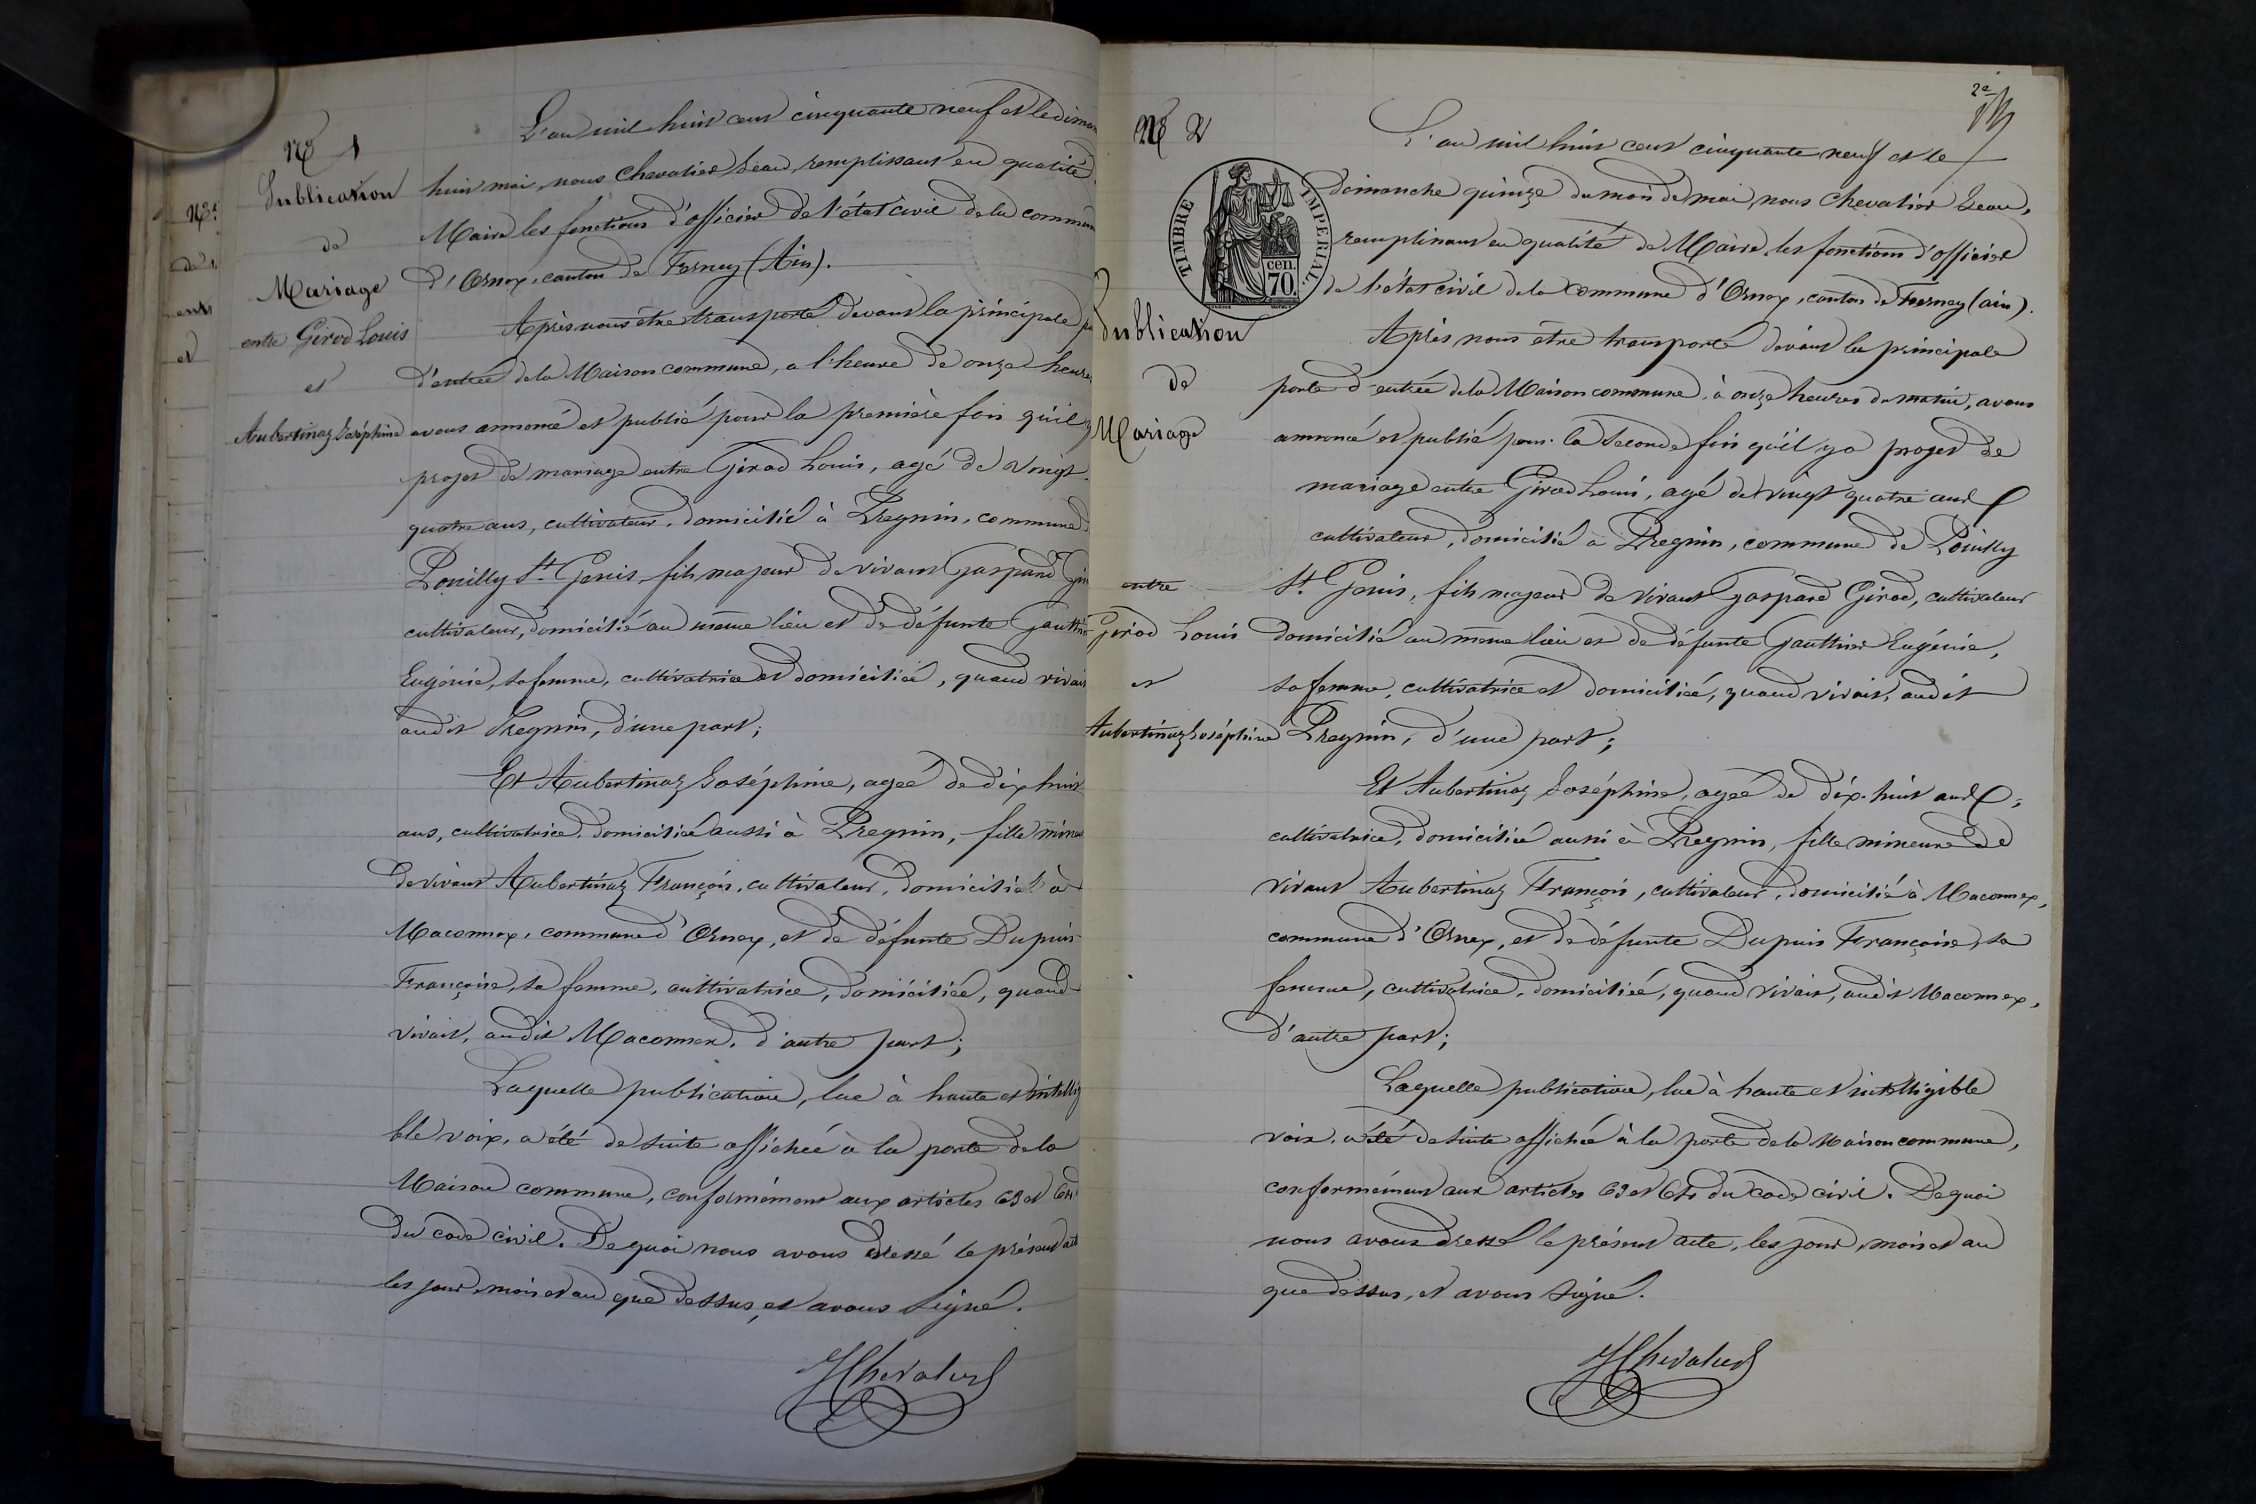 N° 1
Publication
de
Mariage
entre Girod Louis
et
Aubertinaz Joséphine
L'an mil huit cent cinquante neuf et le diman
huit mai, nous Chevalier Jean, remplissant en qualité
Maire les fonctions d'officier de l'état civil de la commun
d'Ornex, canton de Ferney (Ain).
Après nous être transporté devant la principale
d'entrée de la Maison commune, a l'heure de onze heures
avons annoncé et publié pour la première fois qu'il
projet de mariage entre Girod Louis, agé de vingt
quatre ans, cultivateur, domicilié à Pregnin, commune
Pouilly St. Genis, fils majeur de vivant Gaspard
cultivateur, domicilié au même lieu et de défunte Gauthier
Eugénie, sa femme, cultivatrice et domiciliée, quand vivait
audit Pregnin, d'une part;
Et Aubertinaz Joséphine, agée de dix huit
ans, cultivatrice, domiciliée aussi à Pregnin, fille mineu
de vivant Aubertinaz François, cultivateur, domicilié à
Maconnex, commune d'Ornex, et de défunte Dupuis
Françoise, sa femme, cultivatrice, domiciliée, quand
vivait, audit Maconnex, d'autre part;
Laquelle publication, lue à haute et intelligi
ble voix, a été de suite affichée à la porte de la
Maison commune, conformément aux articles 63 et 64
du code civil. De quoi nous avons dressé le présent acte
les jour, mois et an que dessus, et avons signé.
JChevalier
2e
N° 2
TIMBRE IMPERIAL
70 cen.
Publication
de
Mariage
entre
Girod Louis
et
Aubertinaz Joséphine
L'an mil huit cent cinquante neuf et le
dimanche quinze du mois de mai, nous Chevalier Jean,
remplissant en qualité de Maire les fonctions d'officier
de l'état civil de la commune d'Ornex, canton de Ferney (ain).
Après nous être transporté devant la principale
porte d'entrée de la Maison commune, à onze heures du matin, avons
annoncé et publié pour la seconde fois qu'il y a projet de
mariage entre Girod Louis, agé de vingt quatre ans
cultivateur, domicilié à Pregnin, commune de Pouilly
St. Genis, fils majeur de vivant Gaspard Girod, cultivateur
domicilié au même lieu et de défunte Gauthier Eugénie,
sa femme, cultivatrice et domiciliée, quand vivait, audit
Pregnin, d'une part;
Et Aubertinaz Joséphine, agée de dix-huit ans,
cultivatrice, domiciliée aussi à Pregnin, fille mineure de
vivant Aubertinaz François, cultivateur, domicilié à Maconnex,
commune d'Ornex, et de défunte Dupuis Françoise, sa
femme, cultivatrice, domiciliée, quand vivait, audit Maconnex,
d'autre part;
Laquelle publication, lue à haute et intelligible
voix, a été de suite affichée à la porte de la Maison commune,
conformément aux articles 63 et 64 du code civil. De quoi
nous avons dressé le présent acte, les jour, mois et an
que dessus, et avons signé.
JChevalier